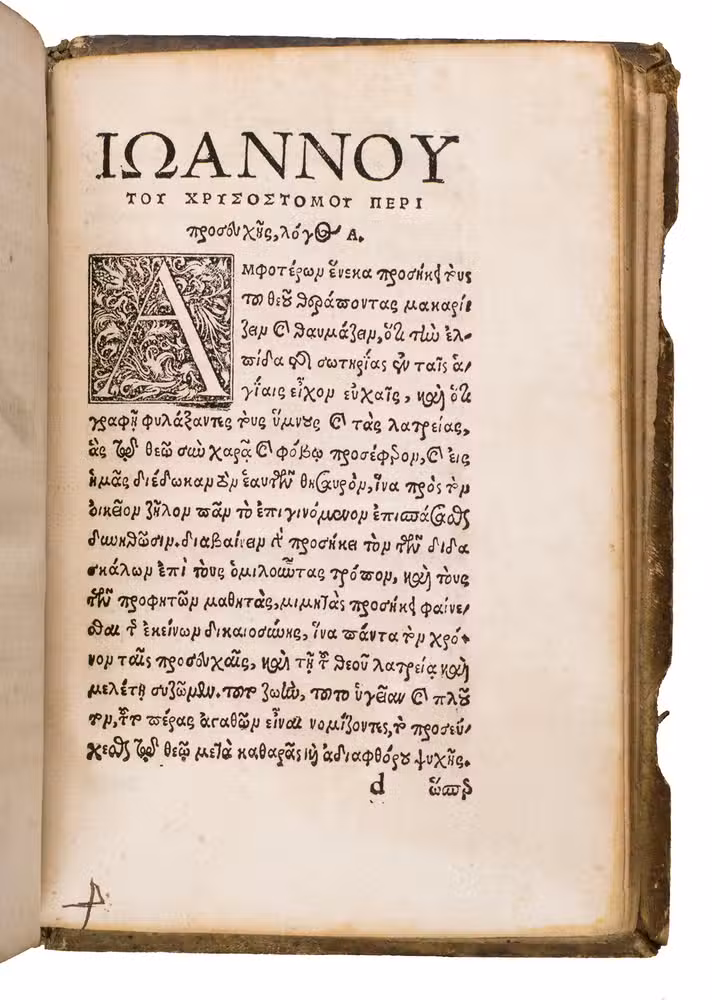 ΙΩΑΝΝΟΥ
ΤΟΥ ΧΡΥΣΟΣΤΟΜΟΥ ΠΕΡΙ
προσευχῆς, λόγος Α.
ΑΜφοτέρων ἕνεκα προσήκει τοὺς
τοῦ θεοῦ θεράποντας μακαρί-
ζειν καὶ θαυμάζειν, ὅτι τὴν ἐλ-
πίδα τῆς σωτηρίας ἐν ταῖς ἁ-
γίαις εἶχον εὐχαῖς, καὶ ὅτι
γραφῇ φυλάξαντες τοὺς ὕμνους καὶ τὰς λατρείας,
ἃς τῷ θεῷ σὺν χαρᾷ καὶ φόβῳ προσέφερον, καὶ εἰς
ἡμᾶς διέδωκαν τὸν ἑαυτῶν θησαυρὸν, ἵνα πρὸς τὸν
οἰκεῖον ζῆλον πᾶν τὸ ἐπιγινόμενον ἐπισπάσασθαι
δυνηθῶσιν. διαβαίνειν γὰρ προσήκει τὸν τῶν διδα
σκάλων ἐπὶ τοὺς ὁμιλοῦντας τρόπον, καὶ τοὺς
τῶν προφητῶν μαθητὰς, μιμητὰς προσήκει φαίνε-
σθαι τῆς ἐκείνων δικαιοσύνης, ἵνα πάντα τὸν χρό-
νον ταῖς προσευχαῖς, καὶ τῇ τοῦ θεοῦ λατρείᾳ καὶ
μελέτῃ συζῶμεν. τοῦτο ζωὴν, τοῦτο ὑγείαν καὶ πλοῦ
τον, πέρας ἀγαθῶν εἶναι νομίζοντες, τὸ προσεύ-
χεσθαι τῷ θεῷ μετὰ καθαρᾶς καὶ ἀδιαφθόρου ψυχῆς.
d ὥσπερ